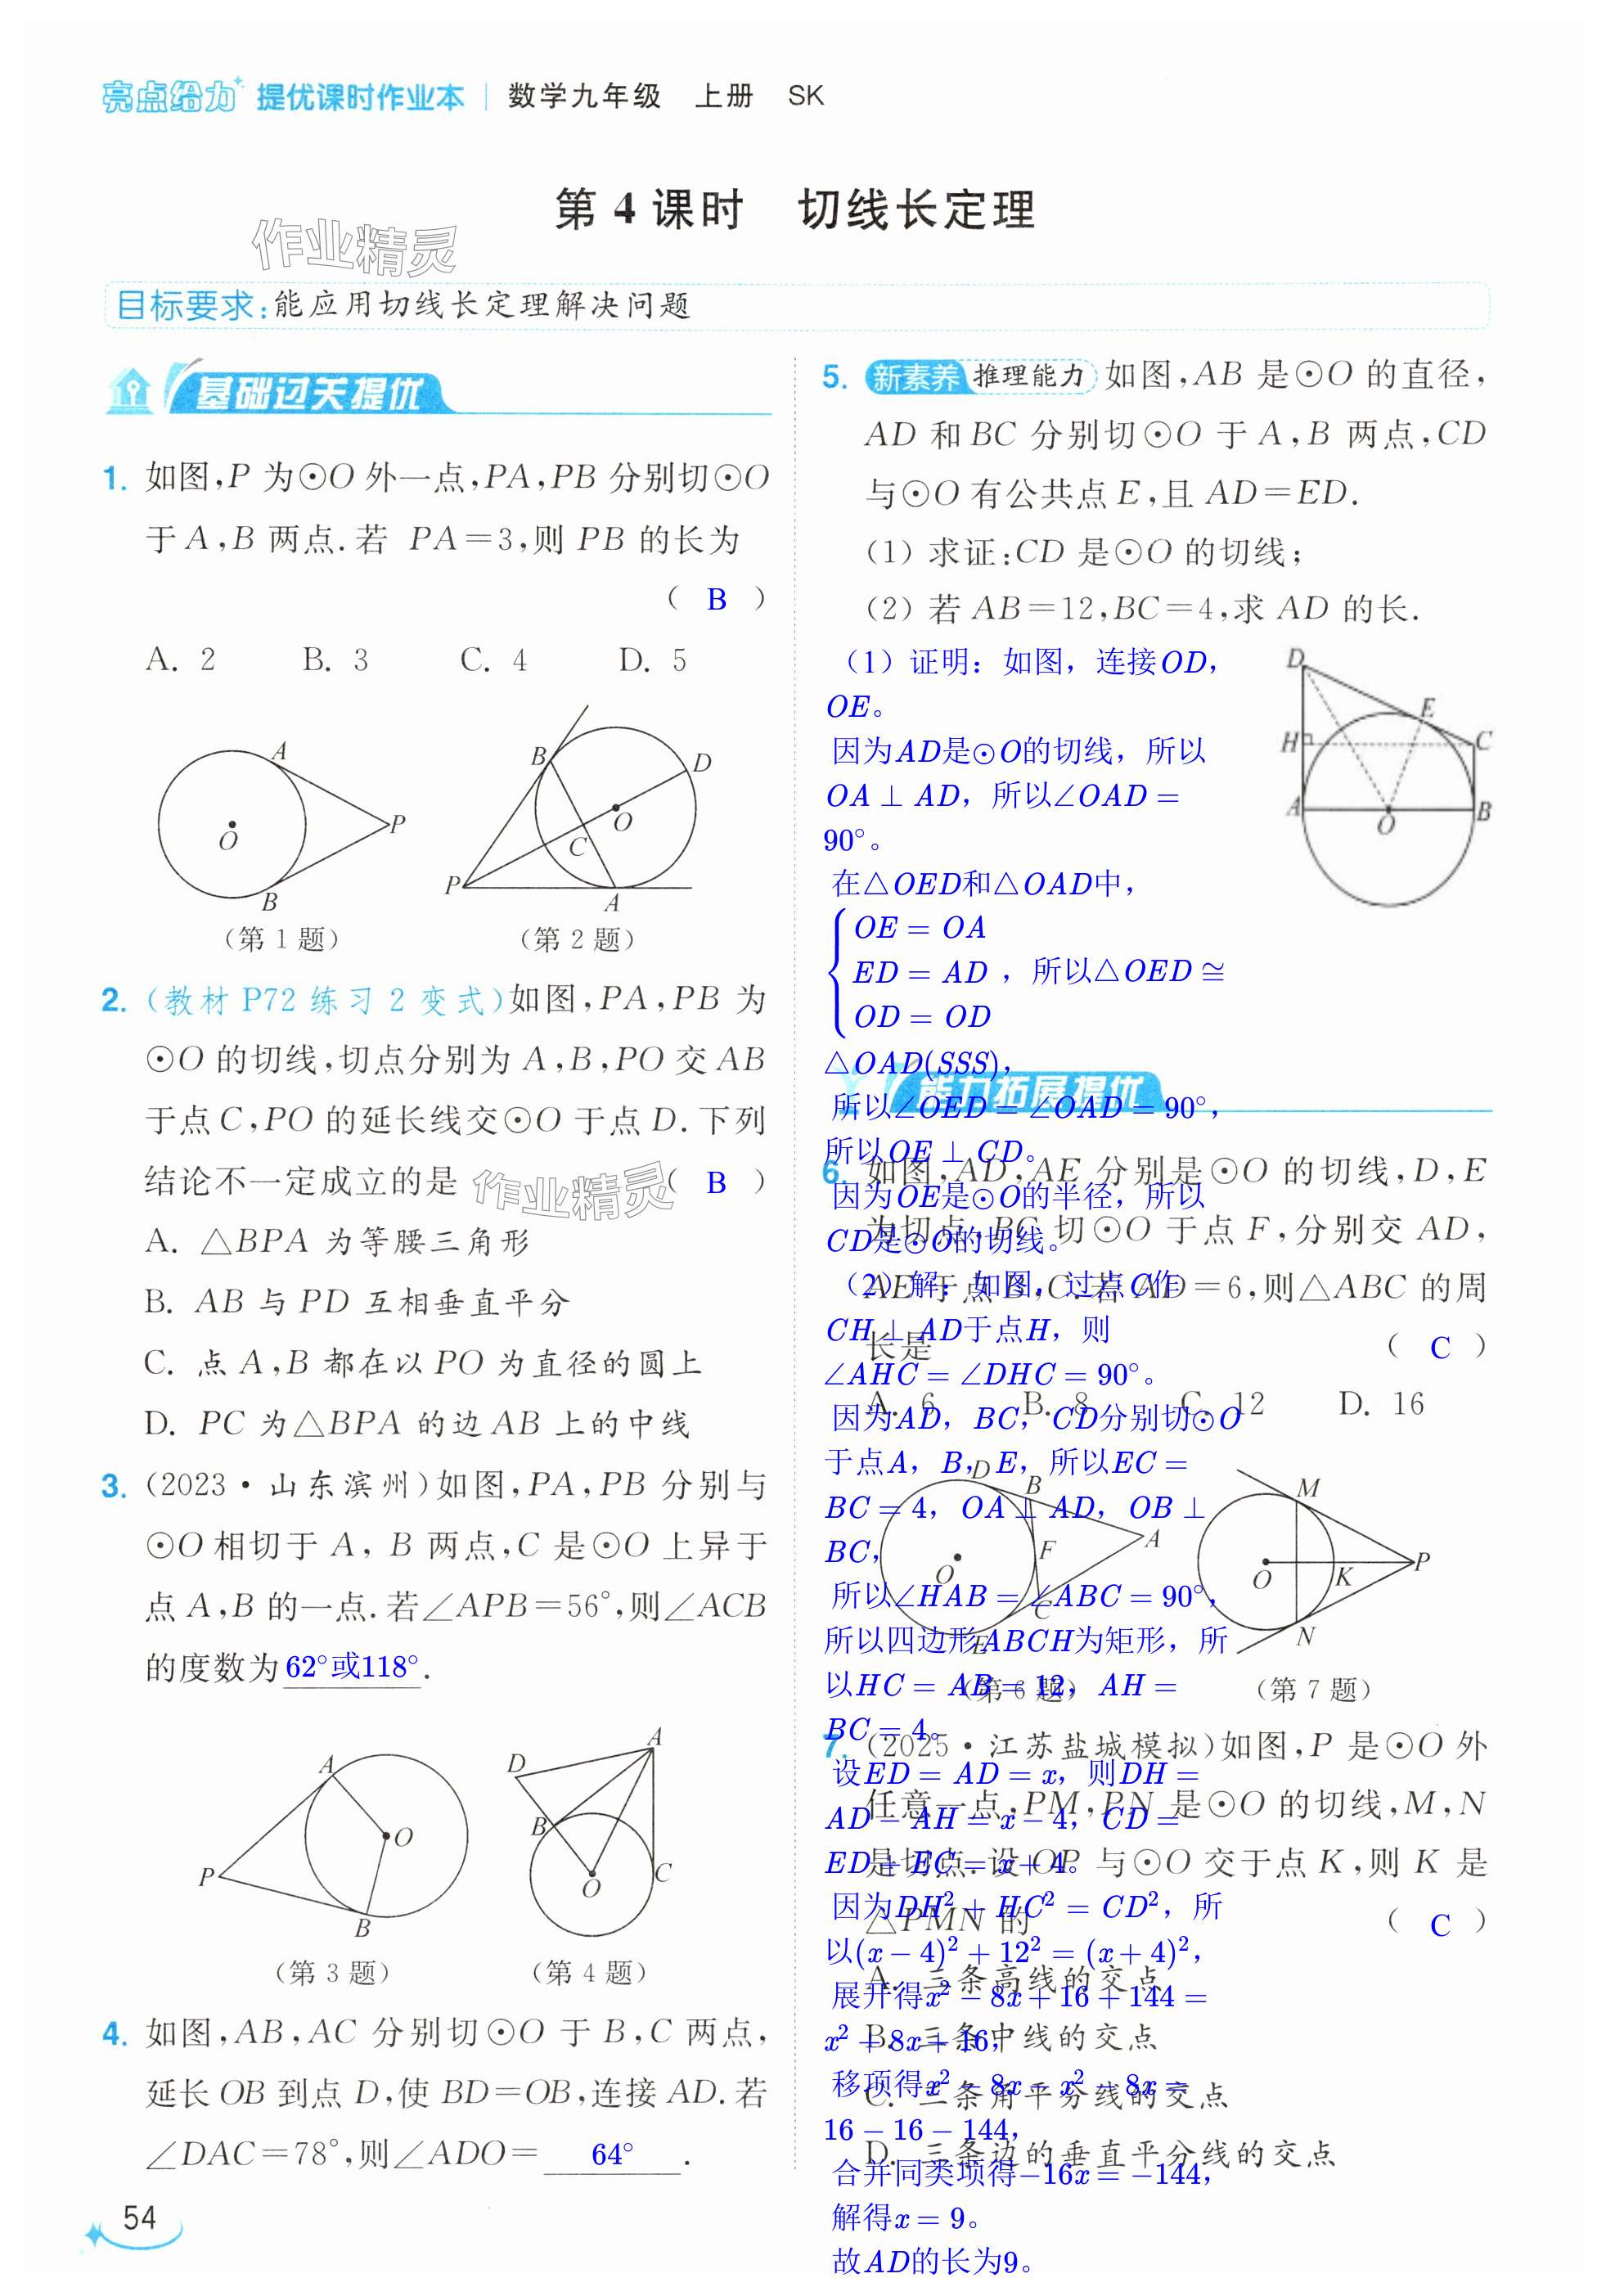 亮点给力 提优课时作业本 数学九年级 上册 SK
第 4 课时 切线长定理
作业精灵
目标要求:能应用切线长定理解决问题
基础过关提优
1. 如图,P 为⊙O 外一点,PA,PB 分别切⊙O
于A,B 两点.若 PA=3,则 PB 的长为
( B )
A. 2 B. 3 C. 4 D. 5
A
O
P
B
(第 1 题)
B
D
O
C
P
A
(第 2 题)
2. (教材 P72 练习 2 变式)如图,PA,PB 为
⊙O 的切线,切点分别为 A,B,PO 交 AB
于点C,PO 的延长线交⊙O 于点 D.下列
结论不一定成立的是 ( B )
作业精灵
A. △BPA 为等腰三角形
B. AB 与 PD 互相垂直平分
C. 点 A,B 都在以 PO 为直径的圆上
D. PC 为△BPA 的边 AB 上的中线
3. (2023·山东滨州)如图,PA,PB 分别与
⊙O 相切于 A, B 两点,C 是⊙O 上异于
点 A,B 的一点.若∠APB=56°,则∠ACB
的度数为 62°或118°.
A
O
P
B
(第 3 题)
A
D
B
O
C
(第 4 题)
4. 如图,AB,AC 分别切⊙O 于 B,C 两点,
延长 OB 到点 D,使 BD=OB,连接 AD.若
∠DAC=78°,则∠ADO= 64° .
54
5. 新素养 推理能力 如图,AB 是⊙O 的直径,
AD 和BC 分别切⊙O 于 A,B 两点,CD
与⊙O 有公共点 E,且 AD=ED.
(1) 求证:CD 是⊙O 的切线;
(2) 若 AB=12,BC=4,求 AD 的长.
(1)证明：如图，连接OD，
OE。
因为AD是⊙O的切线，所以
OA ⊥ AD，所以∠OAD =
90°。
在△OED和△OAD中，
OE = OA
ED = AD ，所以△OED ≅
OD = OD
△OAD(SSS)，
所以∠OED = ∠OAD = 90°，
所以OE ⊥ CD。
因为OE是⊙O的半径，所以
CD是⊙O的切线。
(2)解：如图，过点C作
CH ⊥ AD于点H，则
∠AHC = ∠DHC = 90°。
因为AD，BC，CD分别切⊙O
于点A，B，E，所以EC =
BC = 4，OA ⊥ AD，OB ⊥
BC，
所以∠HAB = ∠ABC = 90°，
所以四边形ABCH为矩形，所
以HC = AB = 12，AH =
BC = 4。
设ED = AD = x，则DH =
AD − AH = x − 4，CD =
ED + EC = x + 4。
因为DH² + HC² = CD²，所
以(x − 4)² + 12² = (x + 4)²，
展开得x² − 8x + 16 + 144 =
x² + 8x + 16，
移项得x² − 8x − x² − 8x =
16 − 16 − 144，
合并同类项得−16x = −144，
解得x = 9。
故AD的长为9。
D
E
H
C
A
O
B
能力拓展提优
6. 如图,AD,AE 分别是⊙O 的切线,D,E
为切点,BC 切⊙O 于点 F,分别交 AD,
AE 于点 B,C.若 AD=6,则△ABC 的周
长是 ( C )
A. 6 B. 8 C. 12 D. 16
D
B
A
F
O
C
E
(第 6 题)
M
O
K
P
N
(第 7 题)
7. (2025·江苏盐城模拟)如图,P 是⊙O 外
任意一点,PM,PN 是⊙O 的切线,M,N
是切点.设 OP 与⊙O 交于点 K,则 K 是
△PMN 的 ( C )
A. 三条高线的交点
B. 三条中线的交点
C. 三条角平分线的交点
D. 三条边的垂直平分线的交点